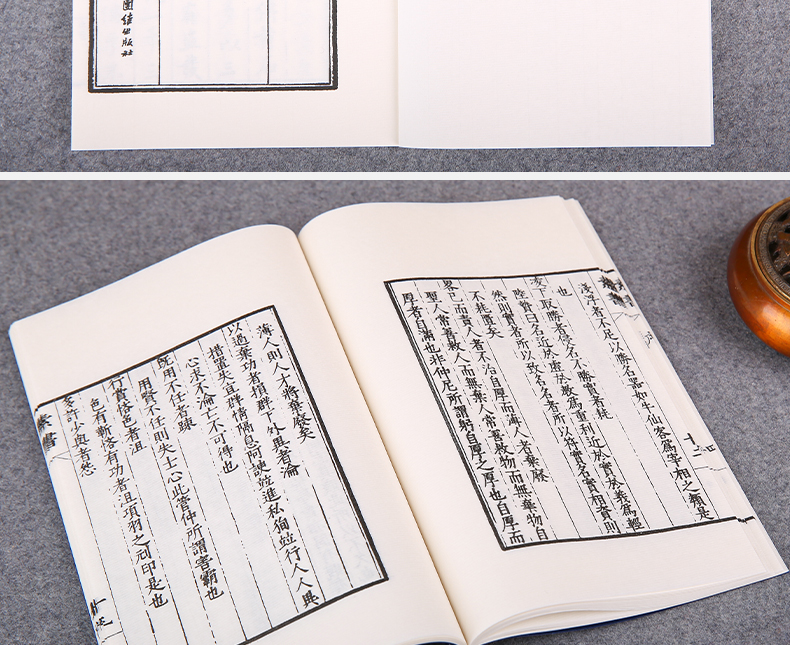 團結出版社
淺浮者不足以勝名器如牛仙客為宰相之類是
也
凌下取勝者侵名不勝實者耗
陸贄曰名近於虛於教為重利近於實於義為輕
然則實者所以致名名者所以符實名實相資則
不耗匱矣
略己而責人者不治自厚而薄人者棄廢
聖人常善救人而無棄人常善救物而無棄物自
厚者自滿也非仲尼所謂躬自厚之厚也自厚而
薄人則人才將棄廢矣
以過棄功者損群下外異者淪
措置失宜群情隔息阿諛並進私徇並行人人異
心求不淪亡不可得也
既用不任者疎
用賢不任則失士心此管仲所謂害霸也
行賞恡色者沮
色有靳恡有功者沮項羽之刓印是也
多許少與者怨
素書